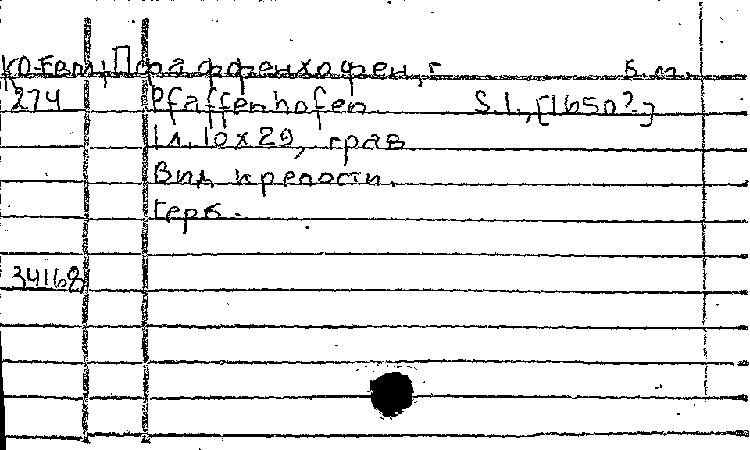 КО-Евт, Пфаффенхофен, г. б.м.
274 Pfaffenhofen S.l., [1650?]
1 л. 10 x 29, грав
Вид крепости.
Герб.
34168